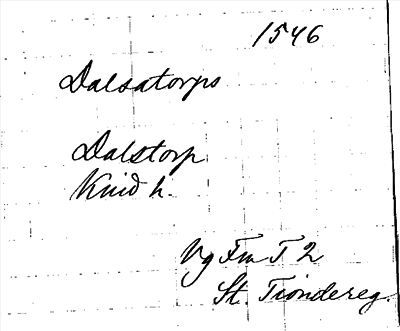 1546
Dalsatorps
Dalstorp
Kind h.
Vg Fm T 2
St. Tiondereg.